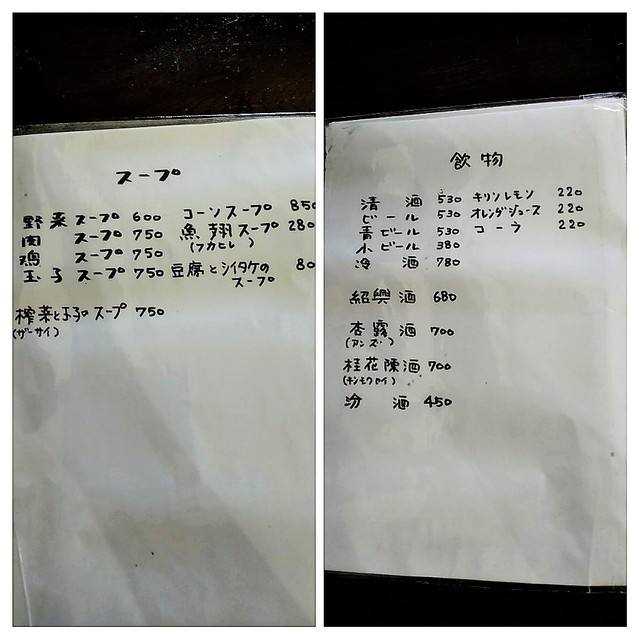 スープ
野菜スープ 600
肉 スープ 750
鶏 スープ 750
玉子スープ 750
榨菜と玉子のスープ 750
(ザーサイ)
コーンスープ 850
魚翅スープ 280
(フカヒレ)
豆腐とシイタケの 80
スープ
飲物
清酒 530
ビール 530
青ビール 530
小ビール 380
冷酒 780
紹興酒 680
杏露酒 700
(アンズ)
桂花陳酒 700
(キンモクセイ)
汾酒 450
キリンレモン 220
オレンジジュース 220
コーラ 220